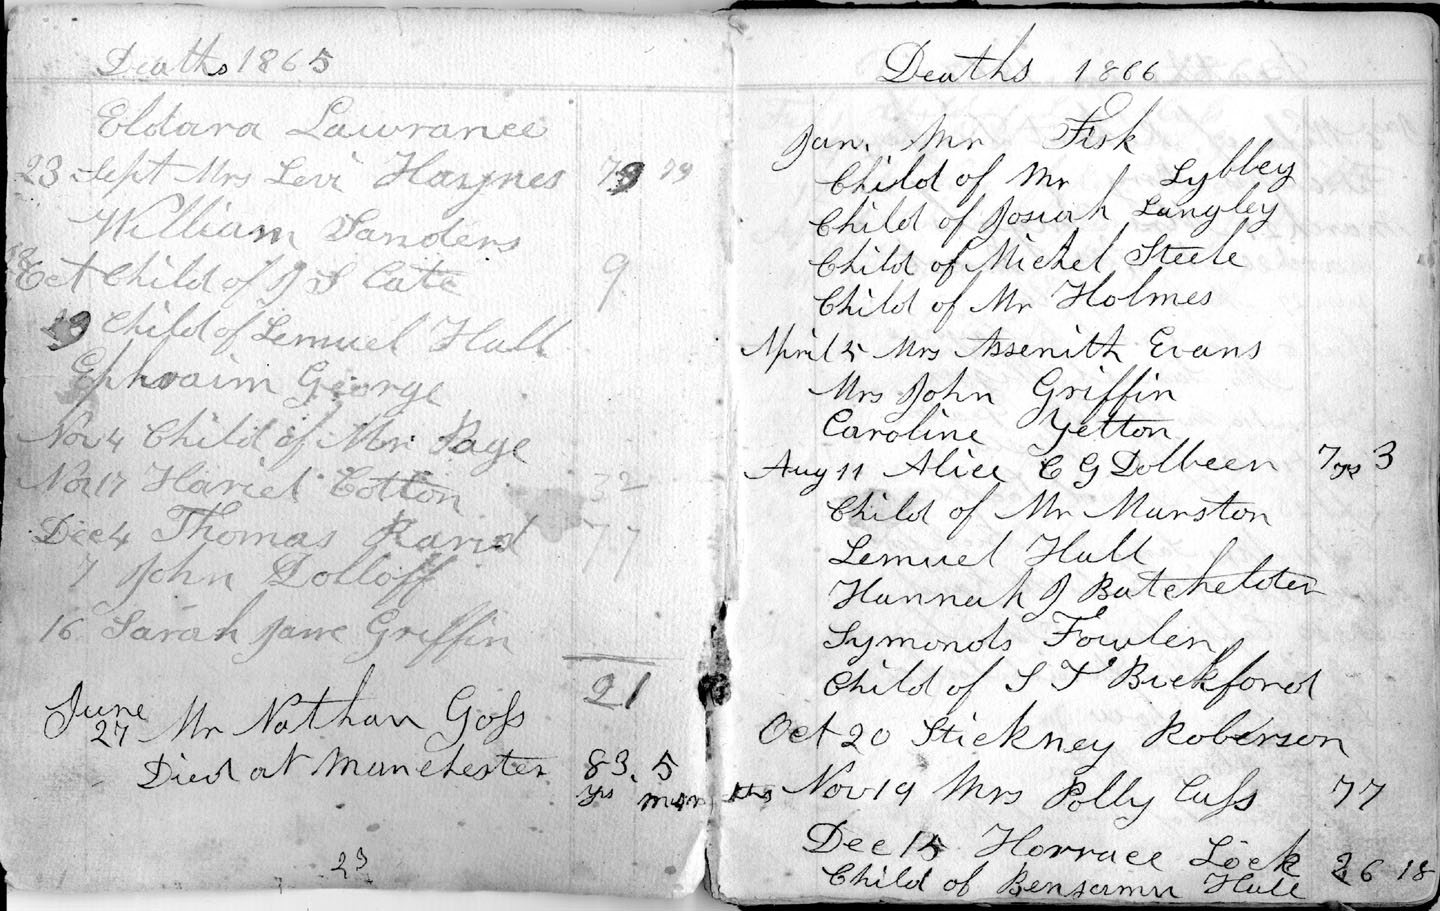 Deaths 1865
Eldara Lawrance
23 Sept Mrs Levi Haynes 79 79
William Sanders
18
Oct Child of J S Cate 9
19 Child of Lemuel Hall
Ephraim George
Nov 4 Child of Mr Page
Nov 11 Hariel Cotton 32
Dec 4 Thomas Rand 77
7 John Dolloff
16 Sarah Jane Griffin
21
June
27 Mr Nathan Goss
Died at Manchester 83. 5
yrs months
23
Deaths 1866
Jan. Mr Fisk
Child of Mr Lybbey
Child of Josiah Langley
Child of Michel Steele
Child of Mr Holmes
April 5 Mrs Assenith Evans
Mrs John Griffin
Caroline Yetton
Aug 11 Alice C G Dolbeen 7 yrs 3
Child of Mr Marston
Lemuel Hall
Hannah J Batchelder
Symonds Fowler
Child of S T Bickford
Oct 20 Stickney Roberson
Nov 19 Mrs Polly Cass 77
Dec 15 Horrace Lock 26 18
Child of Benjamin Hall